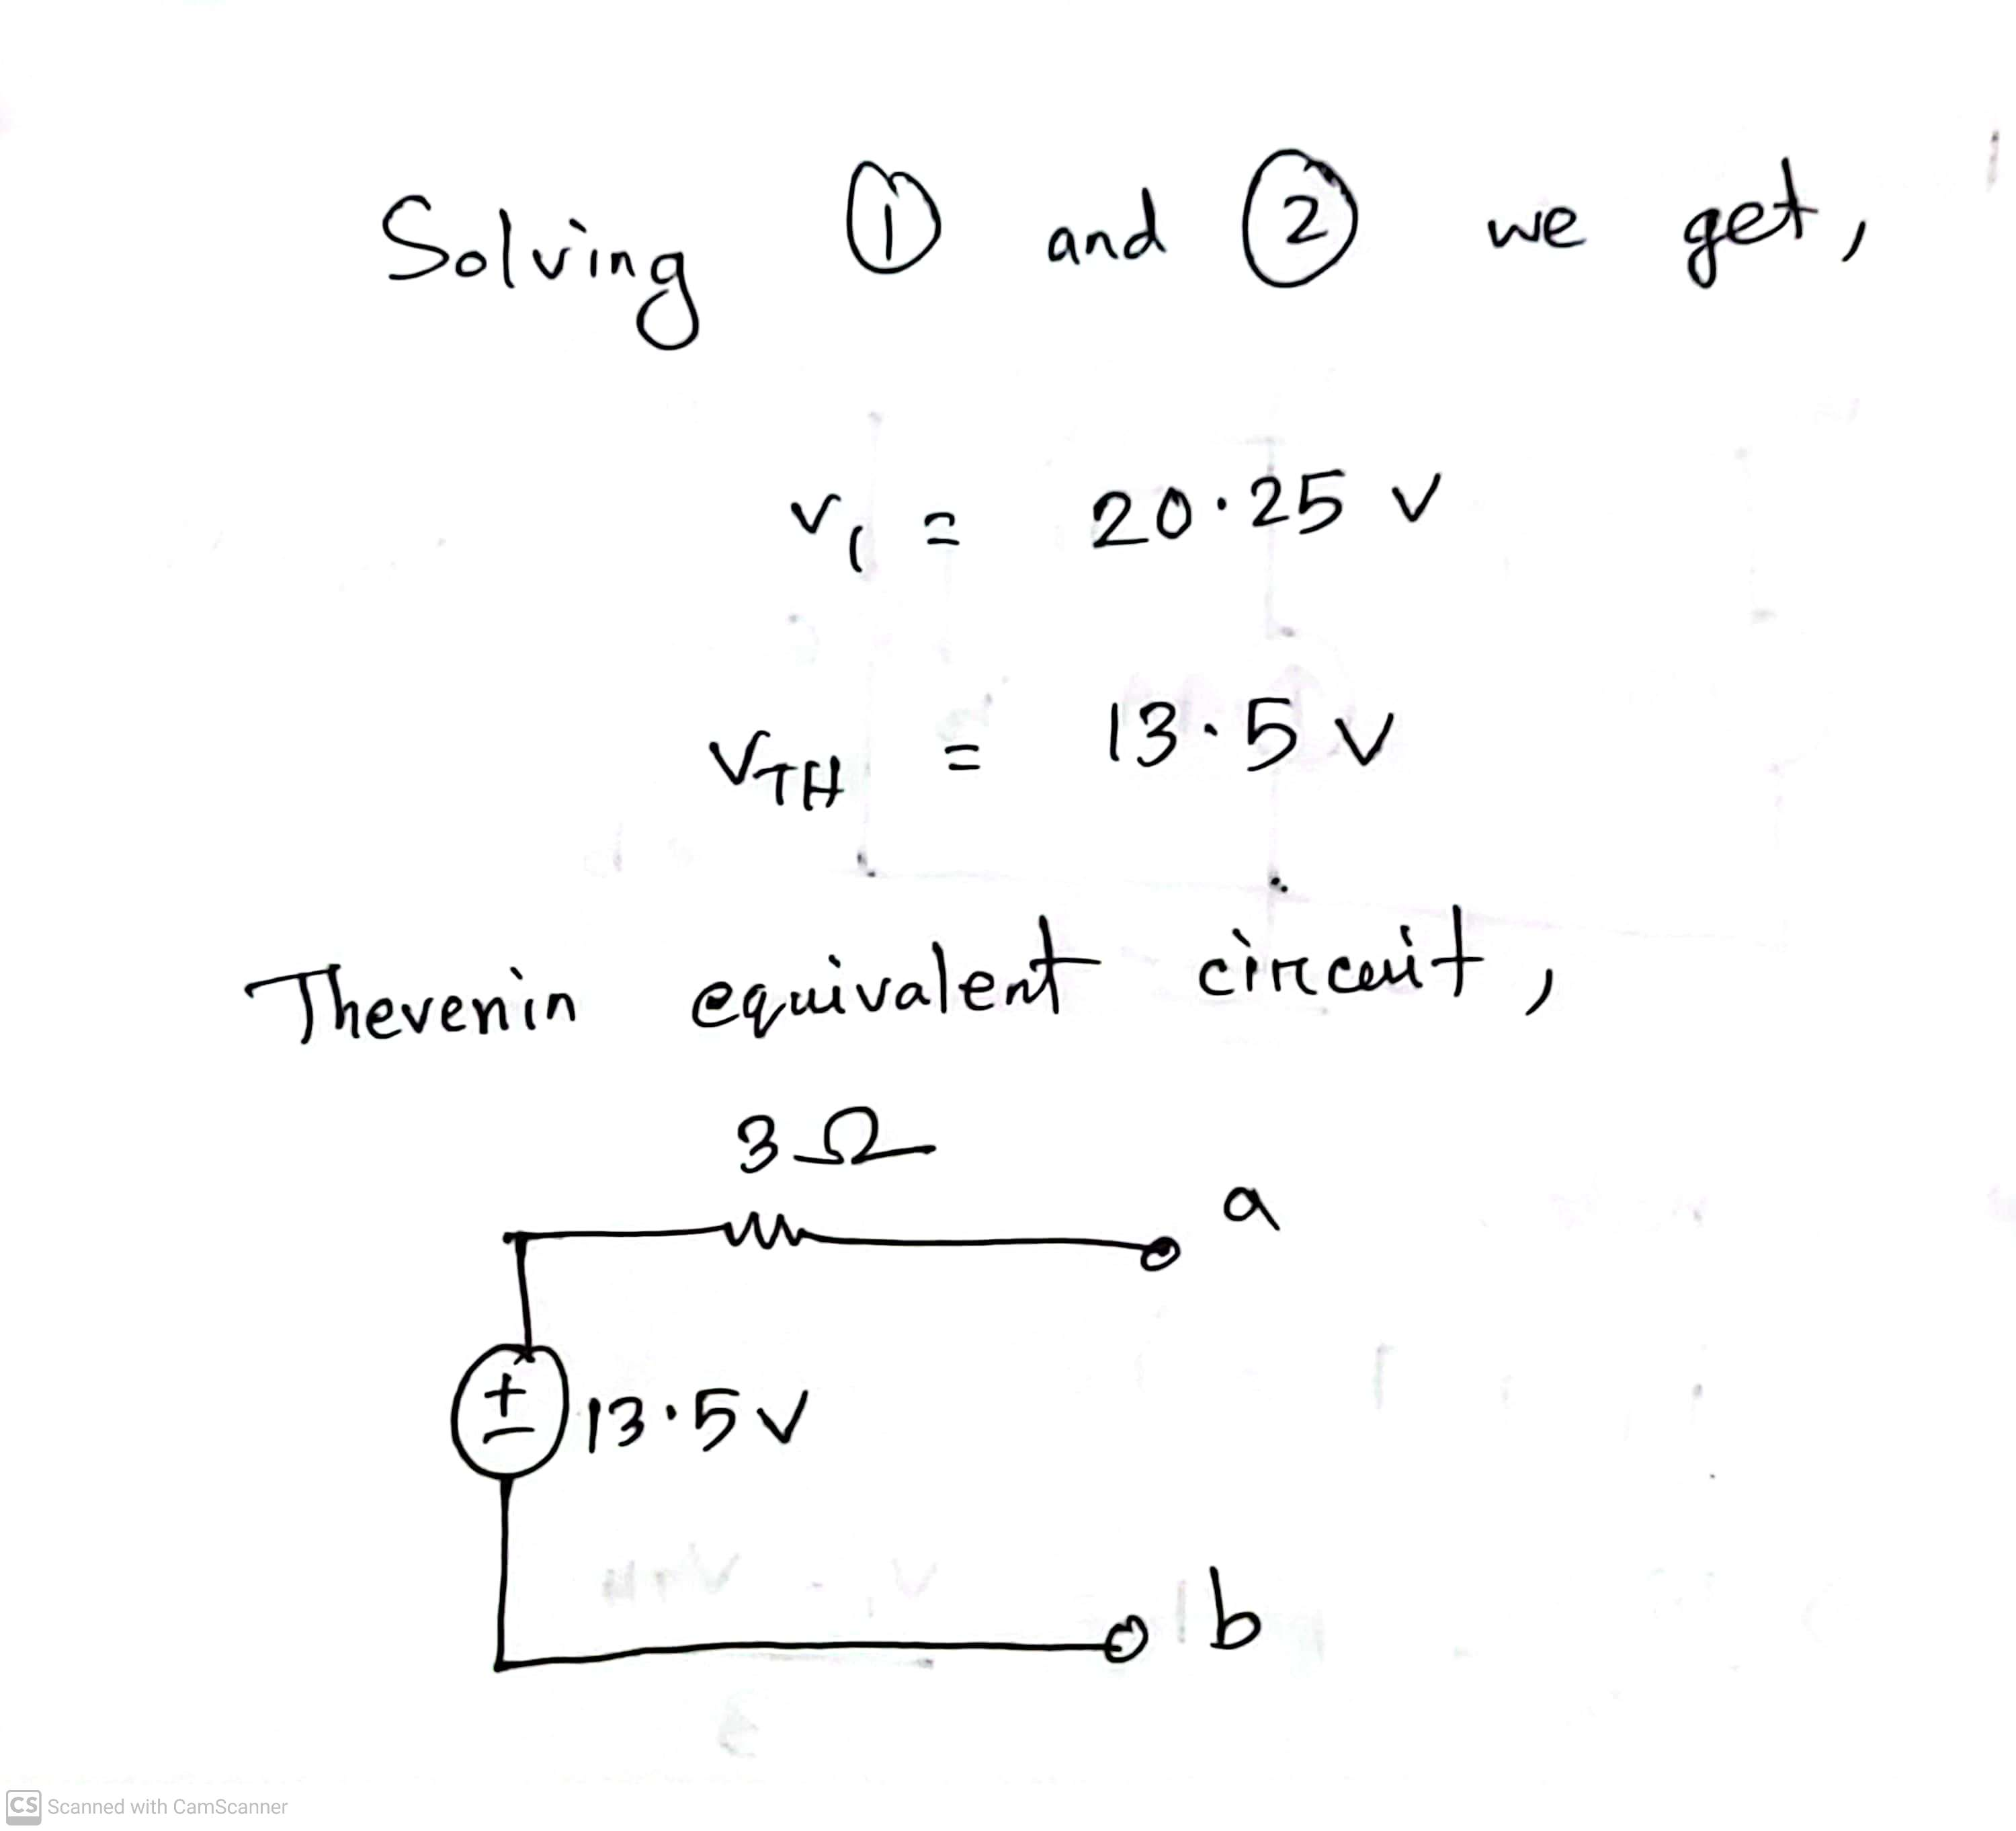 Solving ① and ② we get,
V₁ = 20.25 V
V_TH = 13.5 V
Thevenin equivalent circuit,
3Ω
a
+
-
13.5 V
b
CS Scanned with CamScanner